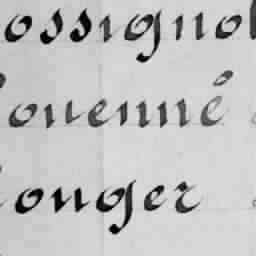 ossignol
ouenné
ouger